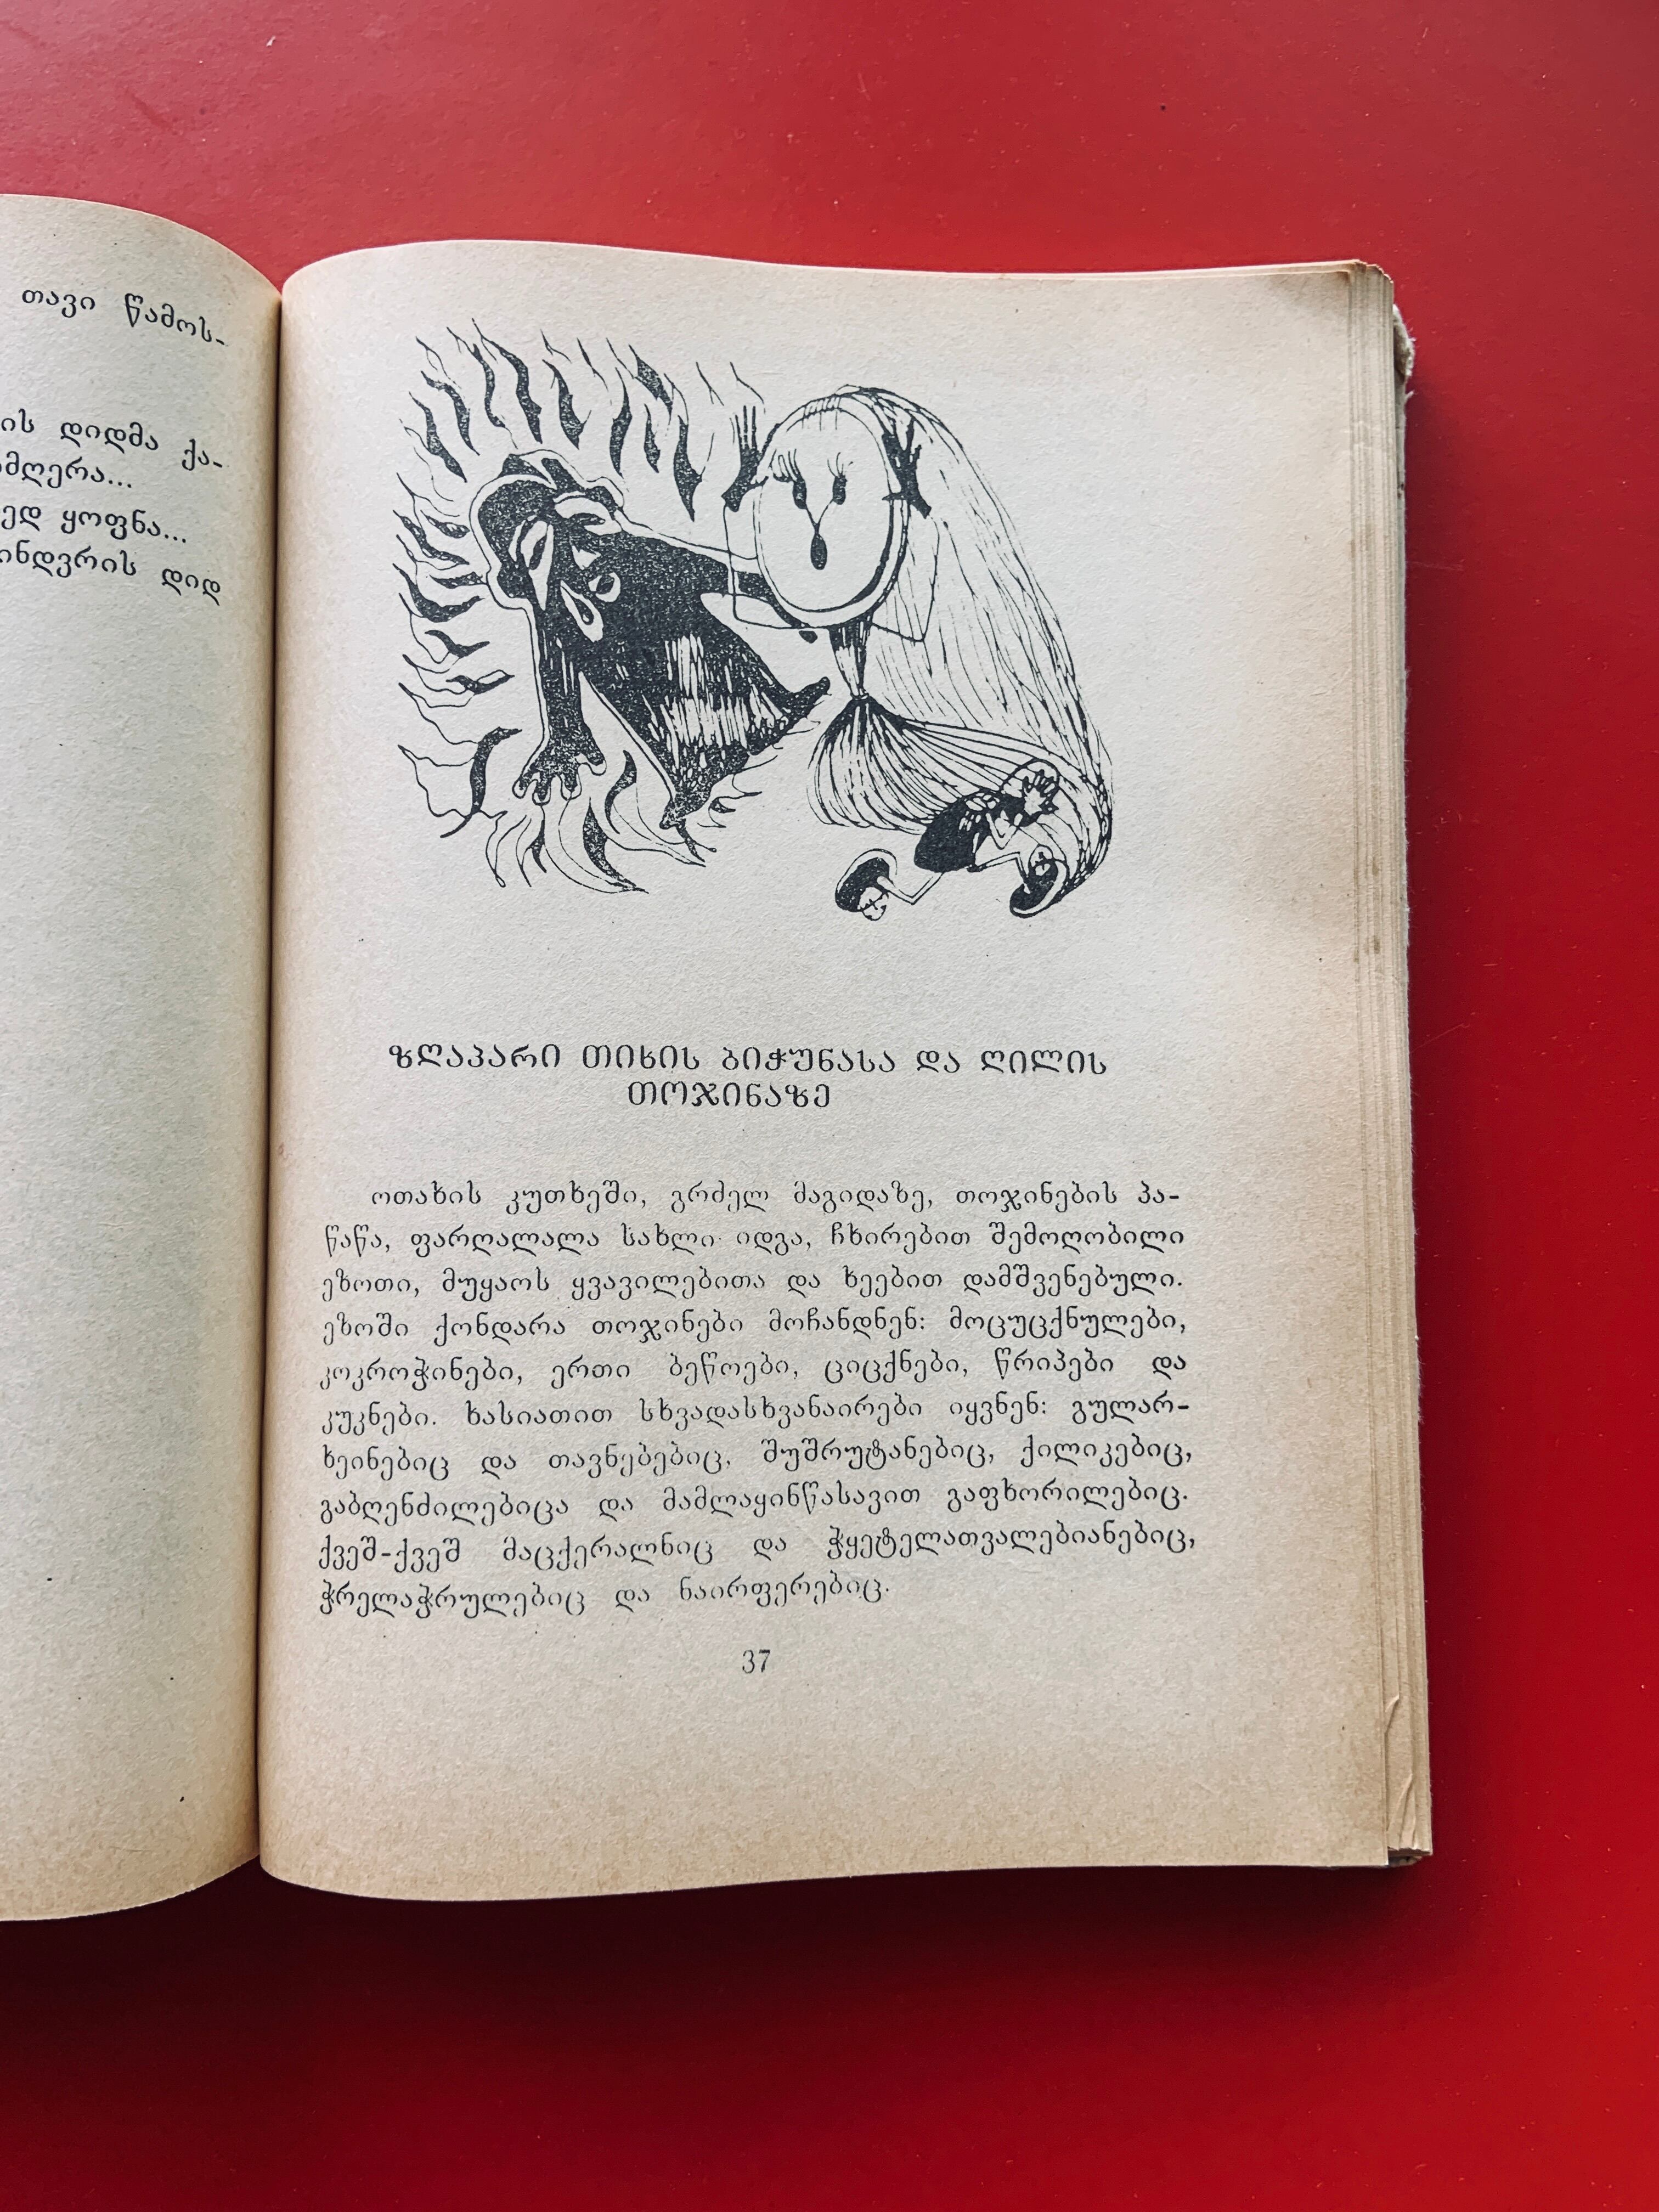 თავი წამოს-
ის დიდმა ქა-
მღერა...
ედ ყოფნა...
ინდვრის დიდ
ზღაპარი თიხის ბიჭუნასა და ღილის
თოჯინაზე
ოთახის კუთხეში, გრძელ მაგიდაზე, თოჯინების პა-
წაწა, ფარღალალა სახლი იდგა, ჩხირებით შემოღობილი
ეზოთი, მუყაოს ყვავილებითა და ხეებით დამშვენებული.
ეზოში ქონდარა თოჯინები მოჩანდნენ: მოცუცქნულები,
კოკროჭინები, ერთი ბეწოები, ციცქნები, წრიპები და
კუკნები. ხასიათით სხვადასხვანაირები იყვნენ: გულარ-
ხეინებიც და თავნებებიც, შუშრუტანებიც, ქილიკებიც,
გაბღენძილებიცა და მამლაყინწასავით გაფხორილებიც.
ქვეშ-ქვეშ მაცქერალნიც და ჭყეტელათვალებიანებიც,
ჭრელაჭრულებიც და ნაირფერებიც.
37